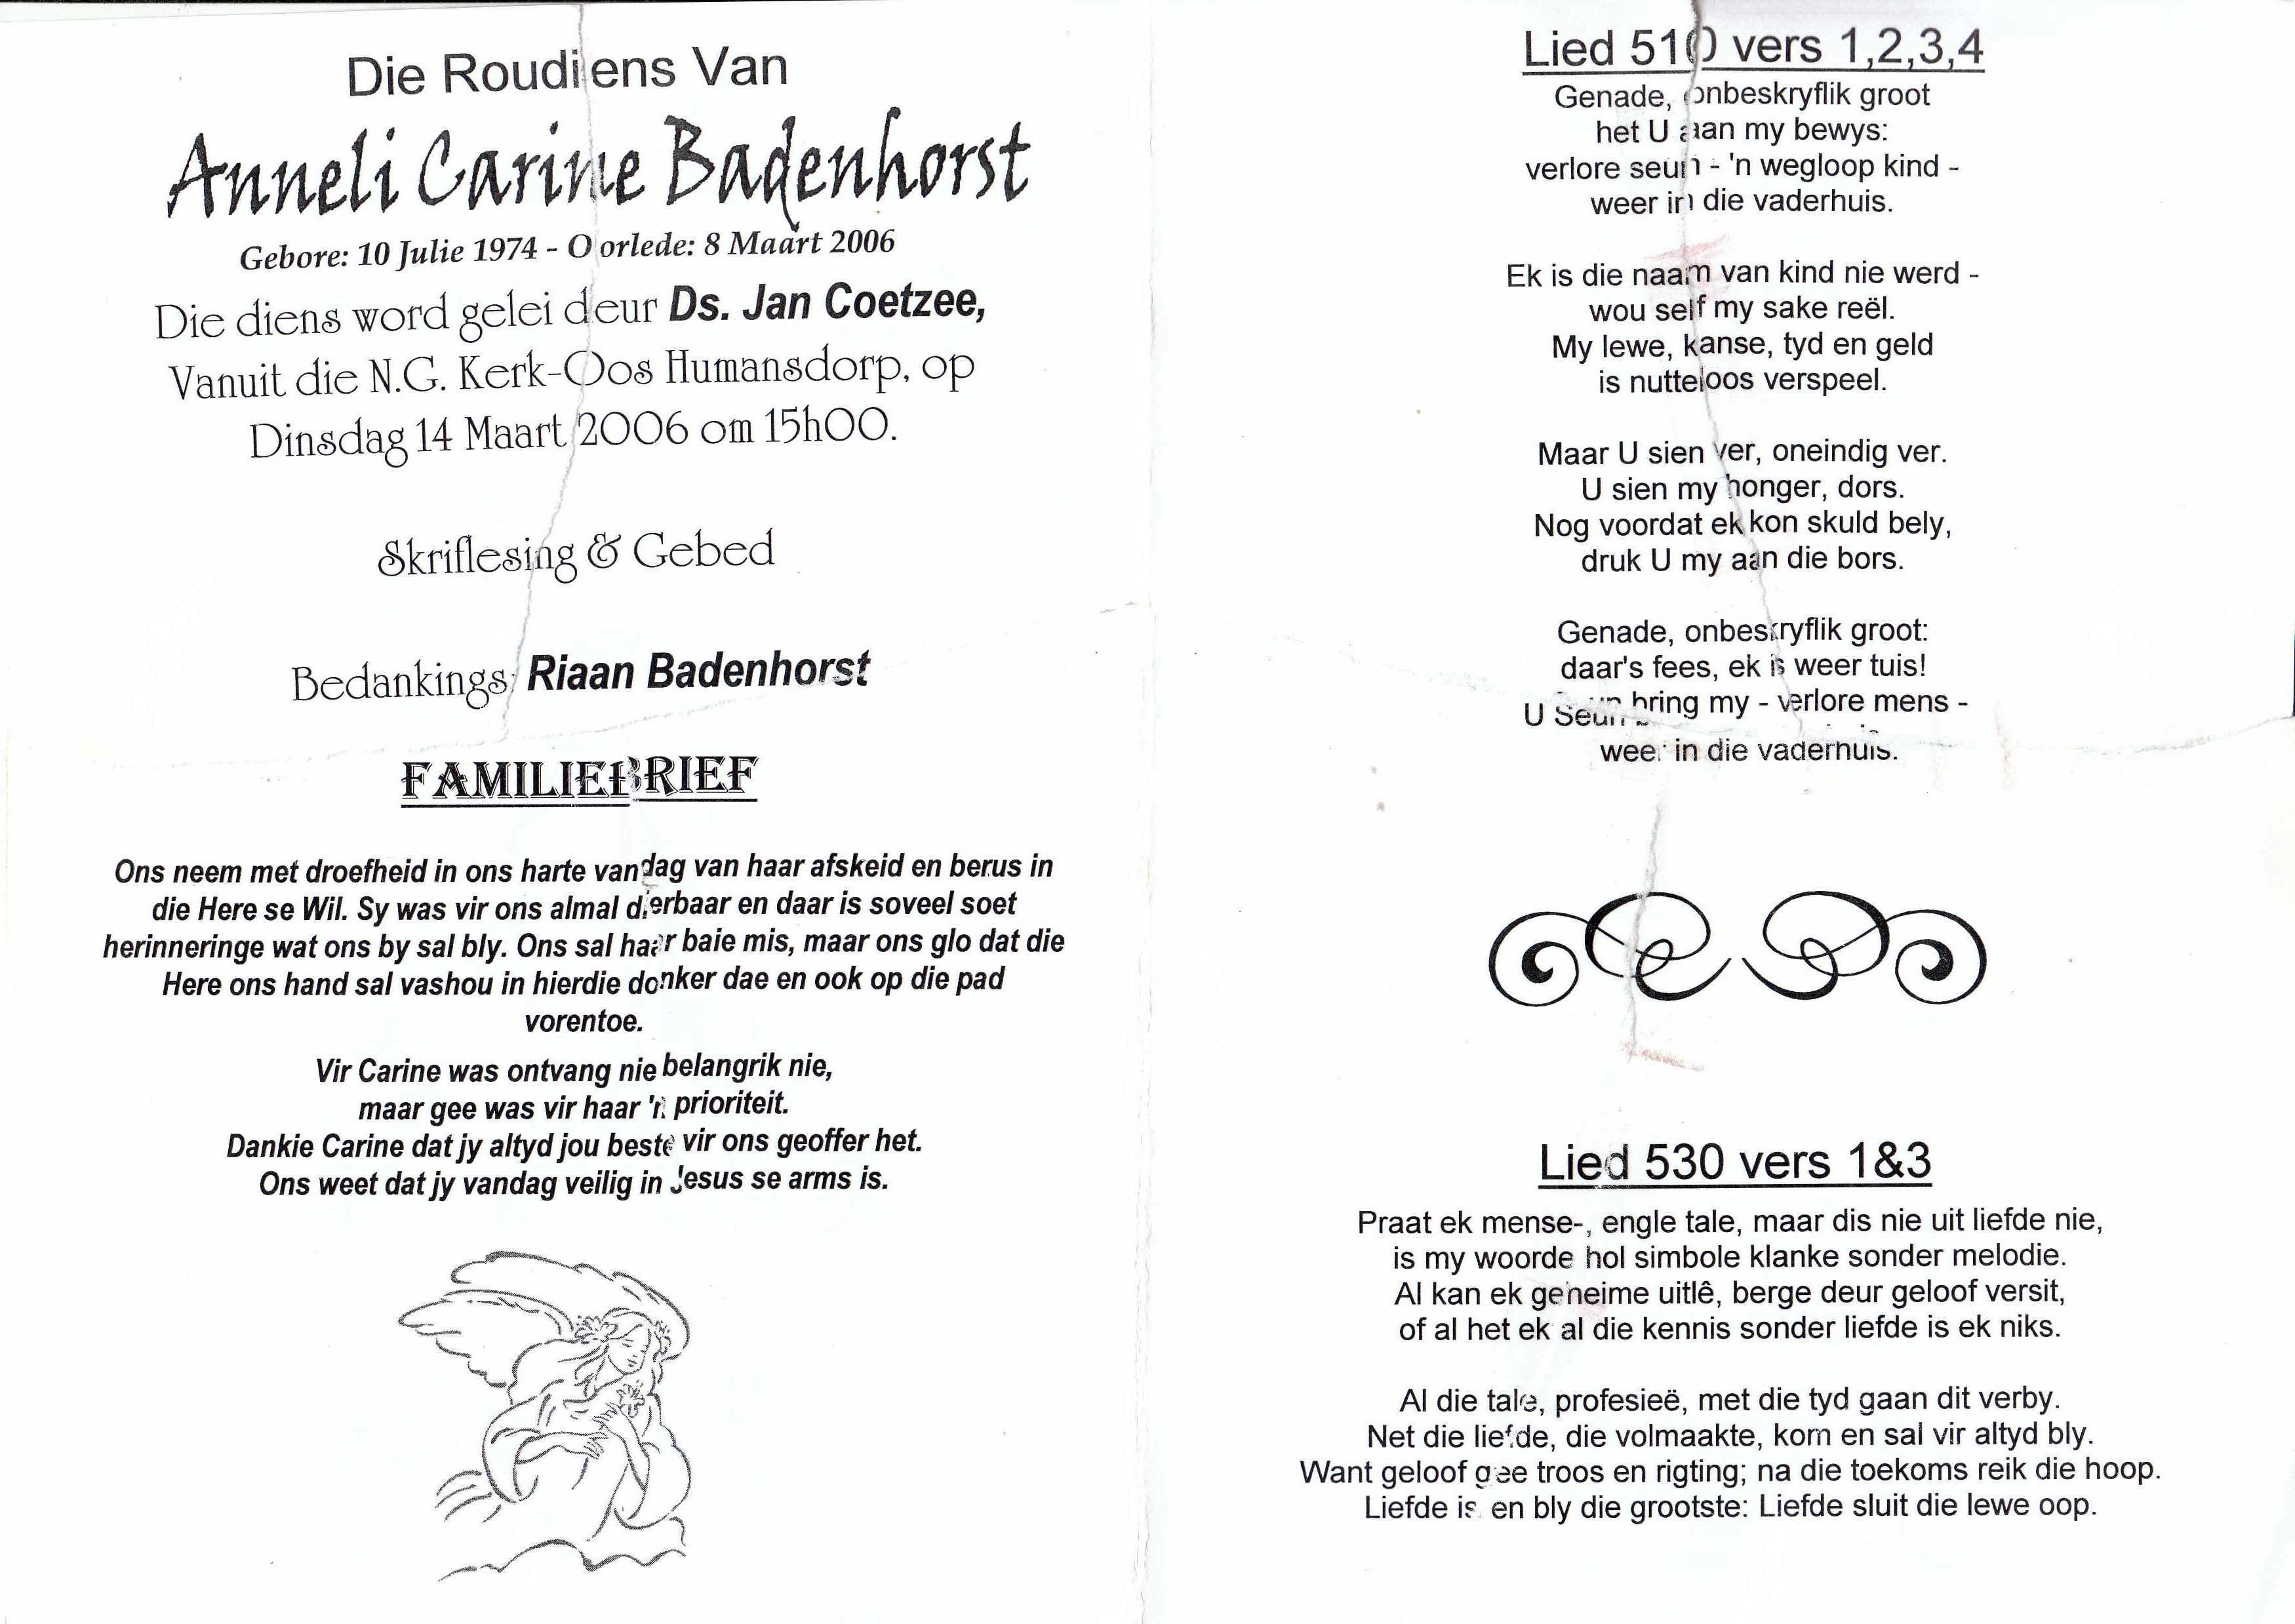 Die Roudiens Van
Anneli Carine Badenhorst
Gebore: 10 Julie 1974 - Oorlede: 8 Maart 2006
Die diens word gelei deur Ds. Jan Coetzee,
Vanuit die N.G. Kerk-Oos Humansdorp, op
Dinsdag 14 Maart 2006 om 15h00.
Skriflesing & Gebed
Bedankings: Riaan Badenhorst
FAMILIEBRIEF
Ons neem met droefheid in ons harte vandag van haar afskeid en berus in
die Here se Wil. Sy was vir ons almal dierbaar en daar is soveel soet
herinneringe wat ons by sal bly. Ons sal haar baie mis, maar ons glo dat die
Here ons hand sal vashou in hierdie donker dae en ook op die pad
vorentoe.
Vir Carine was ontvang nie belangrik nie,
maar gee was vir haar 'n prioriteit.
Dankie Carine dat jy altyd jou beste vir ons geoffer het.
Ons weet dat jy vandag veilig in Jesus se arms is.
Lied 510 vers 1,2,3,4
Genade, onbeskryflik groot
het U aan my bewys:
verlore seun - 'n wegloop kind -
weer in die vaderhuis.
Ek is die naam van kind nie werd -
wou self my sake reël.
My lewe, kanse, tyd en geld
is nutteloos verspeel.
Maar U sien ver, oneindig ver.
U sien my honger, dors.
Nog voordat ek kon skuld bely,
druk U my aan die bors.
Genade, onbeskryflik groot:
daar's fees, ek is weer tuis!
U Seun bring my - verlore mens -
weer in die vaderhuis.
Lied 530 vers 1&3
Praat ek mense-, engle tale, maar dis nie uit liefde nie,
is my woorde hol simbole klanke sonder melodie.
Al kan ek geheime uitlê, berge deur geloof versit,
of al het ek al die kennis sonder liefde is ek niks.
Al die tale, profesieë, met die tyd gaan dit verby.
Net die liefde, die volmaakte, kom en sal vir altyd bly.
Want geloof gee troos en rigting; na die toekoms reik die hoop.
Liefde is en bly die grootste: Liefde sluit die lewe oop.